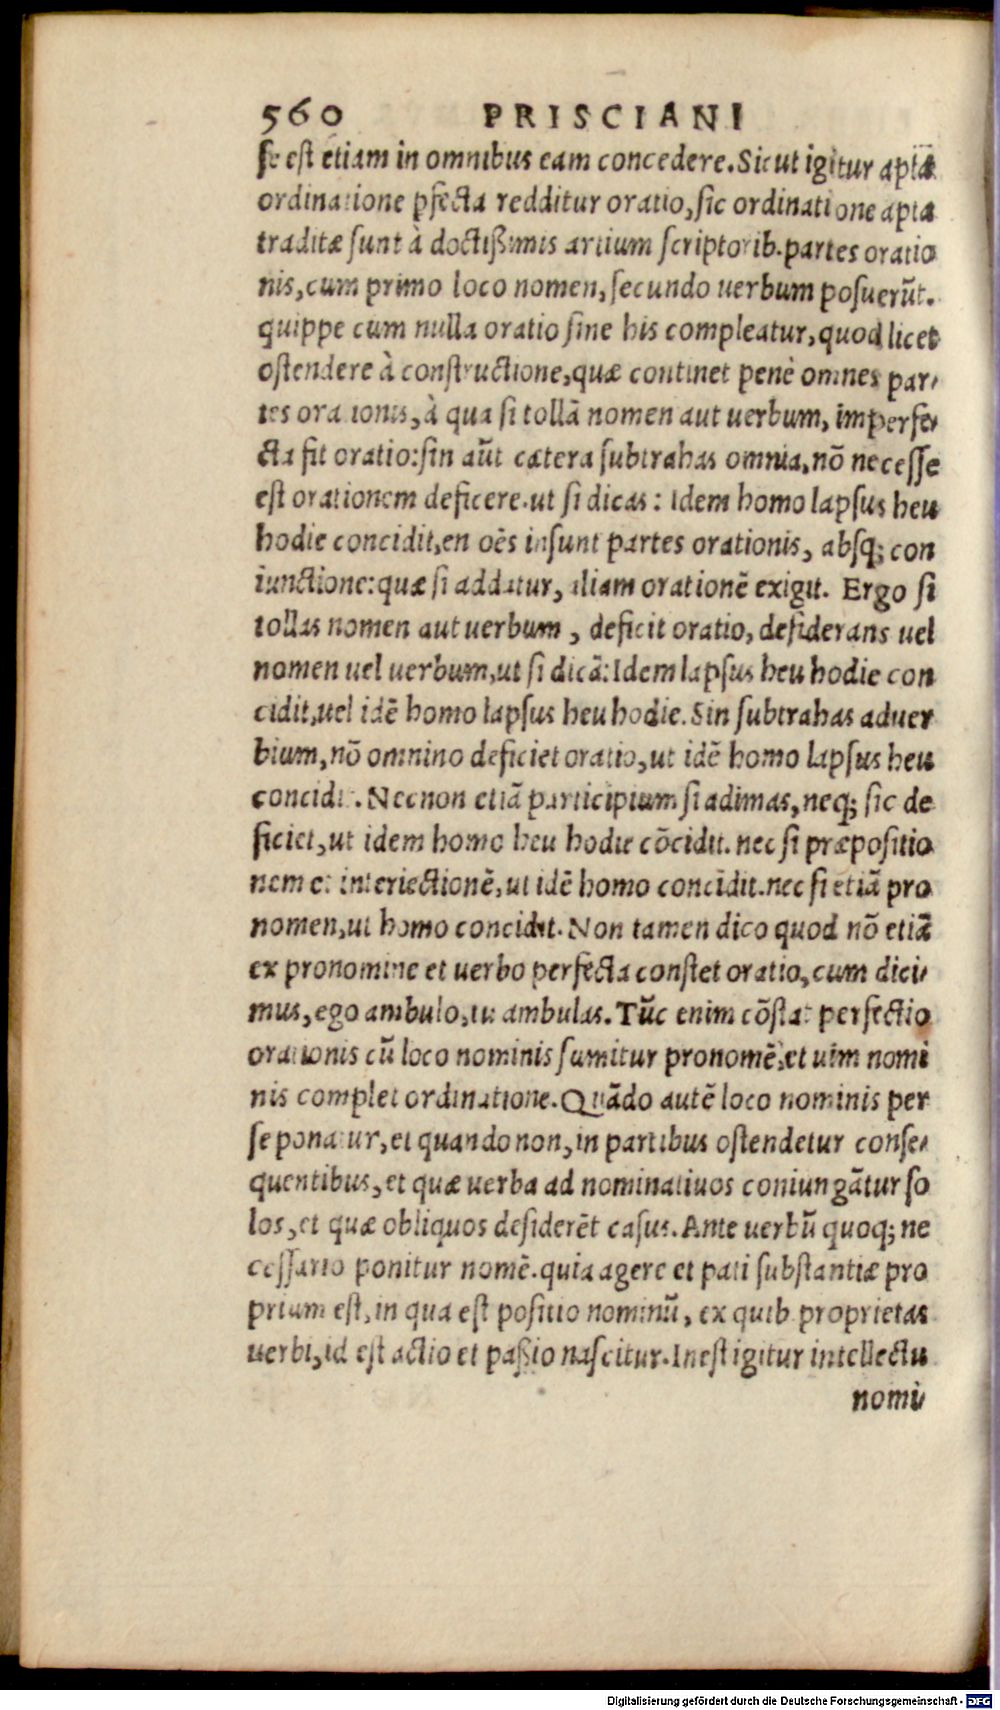 560 PRISCIANI
se est etiam in omnibus eam concedere. Sicut igitur aptā
ordinatione pfecta redditur oratio, sic ordinatione apta
traditæ sunt à doctißimis artium scriptorib. partes oratio
nis, cum primo loco nomen, secundo uerbum posuerūt.
quippe cum nulla oratio sine his compleatur, quod licet
ostendere à constructione, quæ continet penè omnes par-
tes orationis, à qua si tollā nomen aut uerbum, imperfe-
cta fit oratio: sin aūt cætera subtrahas omnia, nō necesse
est orationem deficere. ut si dicas: Idem homo lapsus heu
hodie concidit, en oēs insunt partes orationis, absq; con
iunctione: quæ si addatur, aliam orationē exigit. Ergo si
tollas nomen aut uerbum, deficit oratio, desiderans uel
nomen uel uerbum, ut si dicā: Idem lapsus heu hodie con
cidit, uel idē homo lapsus heu hodie. Sin subtrahas aduer
bium, nō omnino deficiet oratio, ut idē homo lapsus heu
concidit. Necnon etiā participium si adimas, neq; sic de
ficiet, ut idem homo heu hodie cōcidit. nec si præpositio
nem et interiectionē, ut idē homo concidit. nec si etiā pro
nomen, ut homo concidit. Non tamen dico quod nō etiā
ex pronomine et uerbo perfecta constet oratio, cum dici-
mus, ego ambulo, tu ambulas. Tūc enim cōstat perfectio
orationis cū loco nominis sumitur pronomē, et uim nomi
nis complet ordinatione. Quādo autē loco nominis per
se ponatur, et quando non, in partibus ostendetur conse-
quentibus, et quæ uerba ad nominatiuos coniungātur so
los, et quæ obliquos desiderēt casus. Ante uerbū quoq; ne
cessario ponitur nomē. quia agere et pati substantiæ pro
prium est, in qua est positio nominū, ex quib. proprietas
uerbi, id est actio et paßio nascitur. Inest igitur intellectu
nomi-
Digitalisierung gefördert durch die Deutsche Forschungsgemeinschaft - DFG